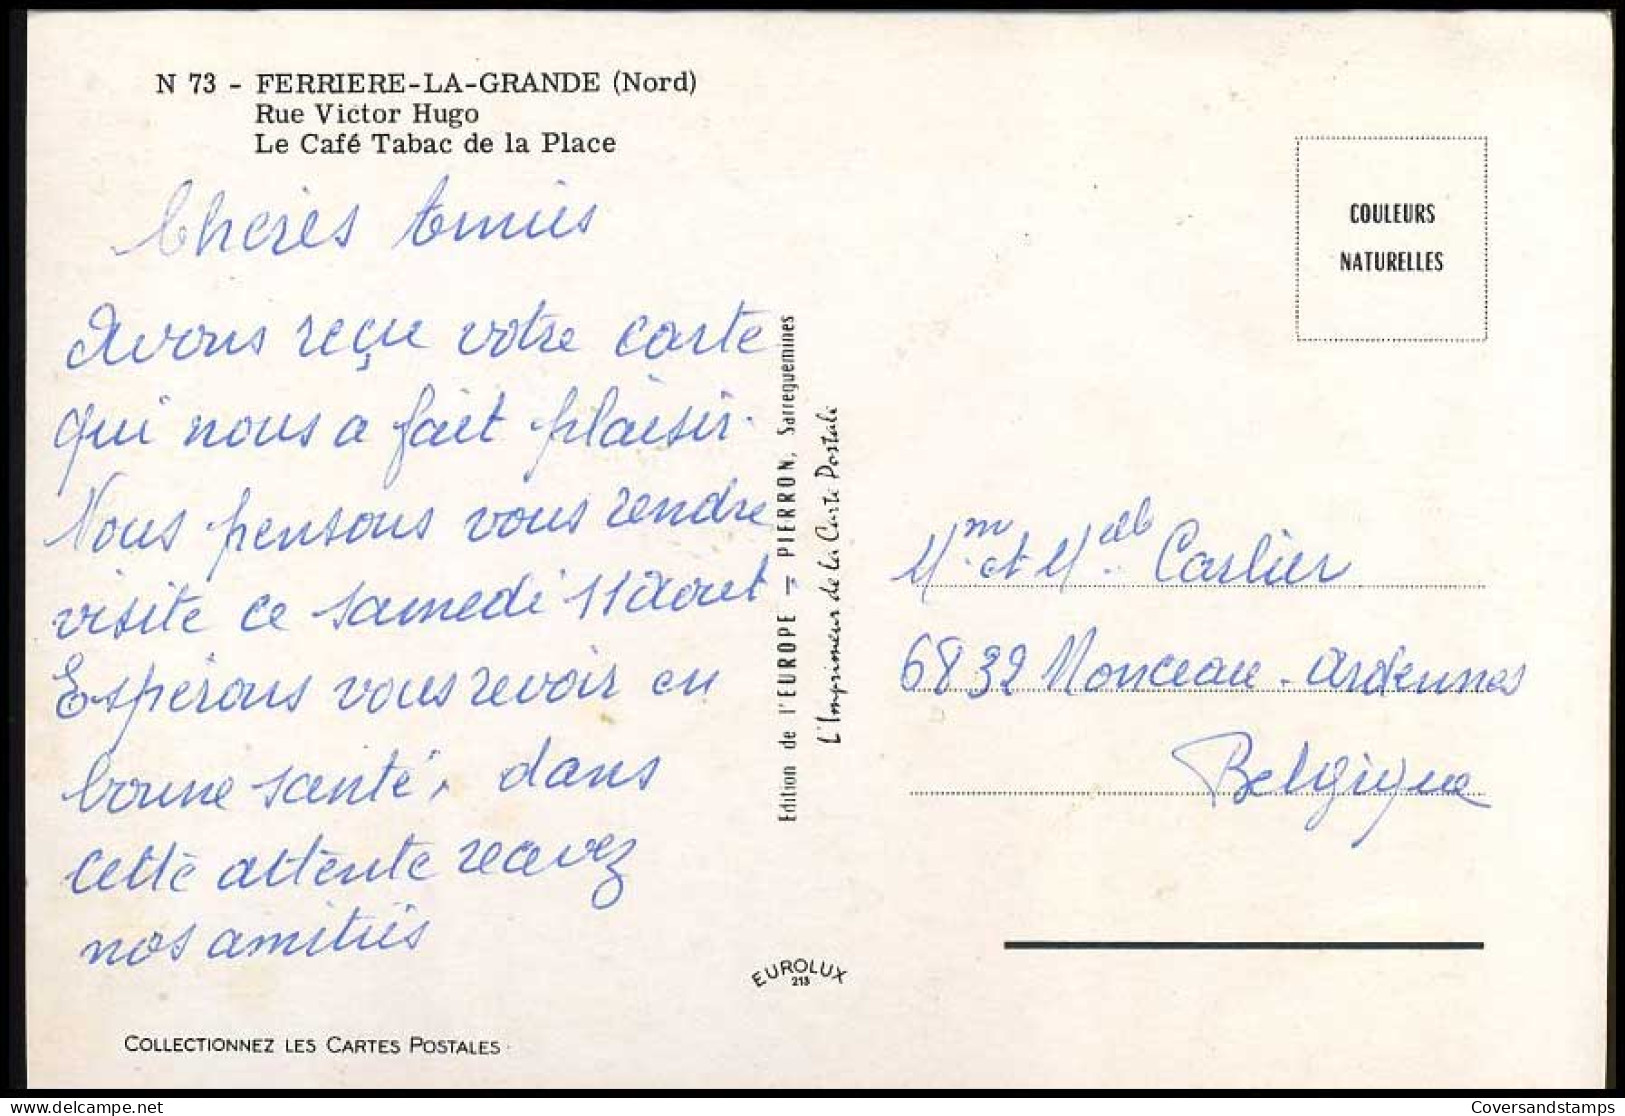 N 73 - FERRIERE-LA-GRANDE (Nord)
Rue Victor Hugo
Le Café Tabac de la Place
Chères Amies
Avons reçu votre carte
qui nous a fait plaisir.
Nous pensons vous rendre
visite ce samedi 11 Aout
Espérons vous revoir en
bonne santé, dans
cette attente recevez
nos amitiés
COLLECTIONNEZ LES CARTES POSTALES
Edition de l'EUROPE — PIERRON, Sarreguemines
L'Imprimeur de la Carte Postale
EUROLUX
213
COULEURS
NATURELLES
et Carlier
6832 Monceau-Ardennes
Belgique
Coversandstamps